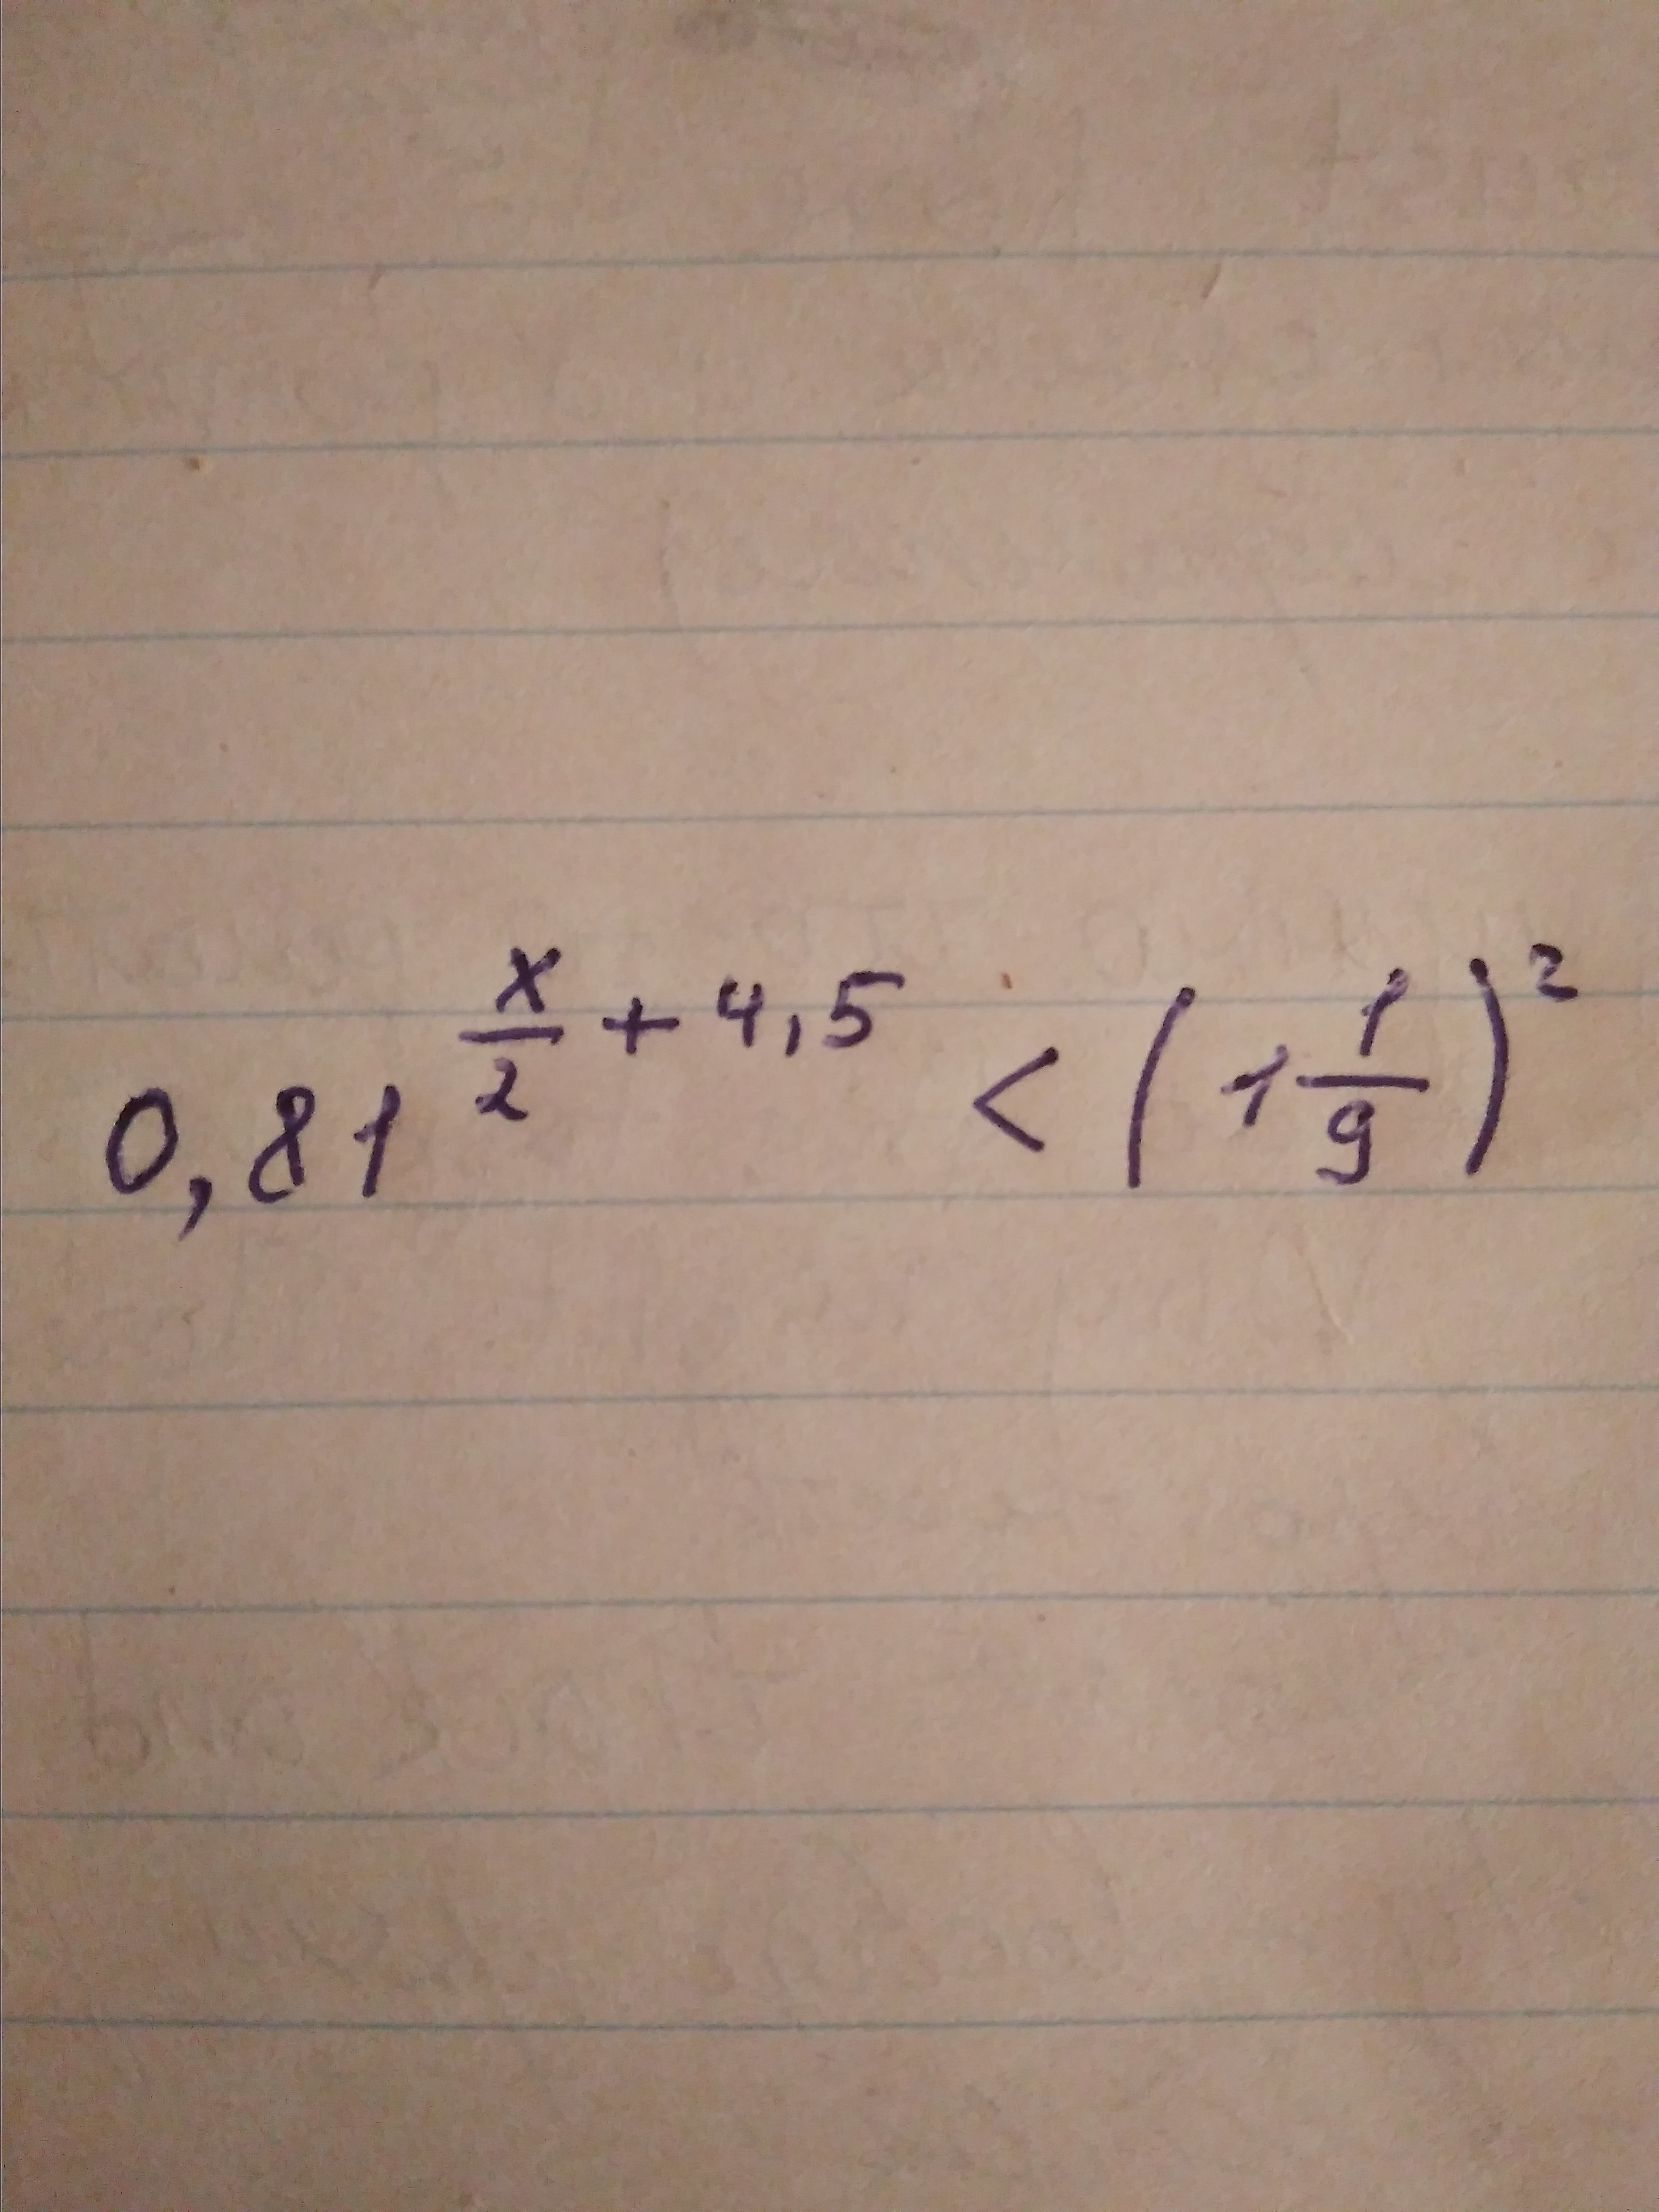 0,81^{\frac{x}{2}+4,5} < (1\frac{1}{9})^2